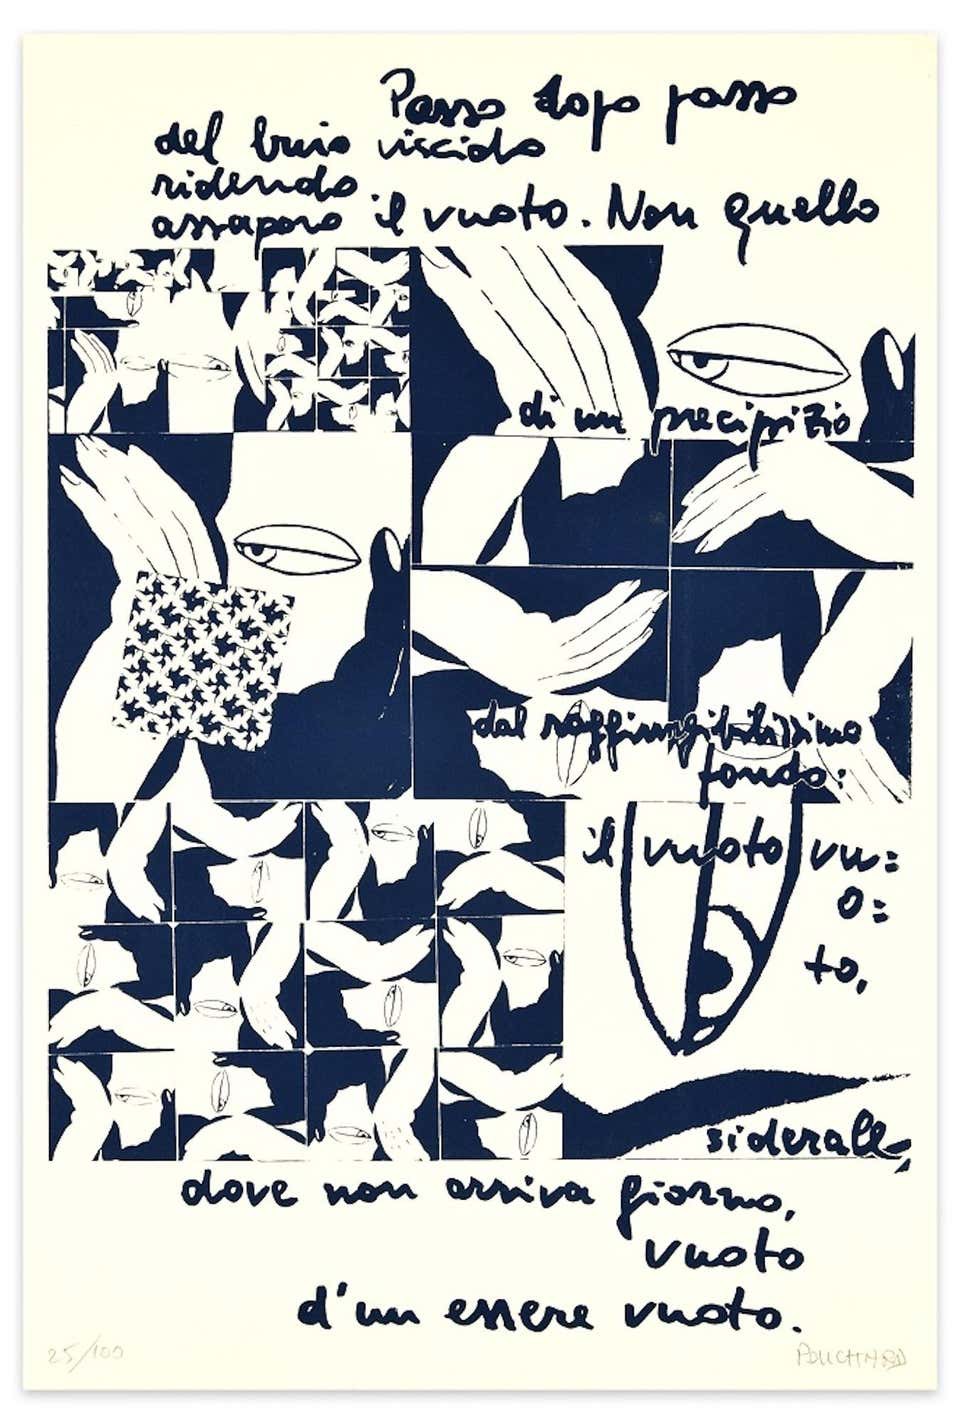 Passo dopo passo
del buio viscido
ridendo
assaporo il vuoto. Non quello
di un precipizio
dal raggiungibilissimo
fondo:
il vuoto vu=
o=
to,
siderale,
dove non arriva giorno,
vuoto
d'un essere vuoto.
25/100